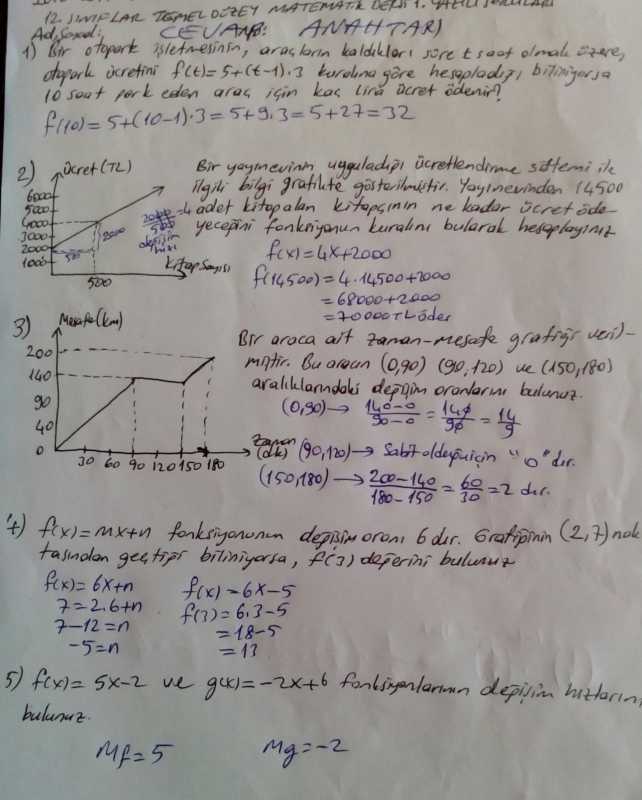 12. SINIFLAR TEMEL DÜZEY MATEMATİK DERSİ 1. YAZILI SORULARI
Ad, Soyad: CEVAP ANAHTARI
1) Bir otopark işletmesinin, araçların kaldıkları süre t saat olmak üzere,
otopark ücretini f(t)=5+(t-1)·3 kuralına göre hesapladığı biliniyorsa
10 saat park eden araç için kaç lira ücret ödenir?
f(10)=5+(10-1)·3=5+9·3=5+27=32
2) Ücret (TL)
6000
5000
4000
3000
2000
1000
500
2000
500
Kitap Sayısı
2000/500=4
değişim
hızı
Bir yayınevinin uyguladığı ücretlendirme sistemi ile
ilgili bilgi grafikte gösterilmiştir. Yayınevinden 14500
adet kitap alan kitapçının ne kadar ücret öde-
yeceğini fonksiyonun kuralını bularak hesaplayınız
f(x)=4x+2000
f(14500)=4·14500+2000
=68000+2000
=70000TL öder
3) Mesafe (km)
200
140
90
40
0
30 60 90 120 150 180
Zaman
(dk)
Bir araca ait zaman-mesafe grafiği veril-
miştir. Bu aracın (0,90) (90,120) ve (150,180)
aralıklarındaki değişim oranlarını bulunuz.
(0,90)→ 140-0/90-0=140/90=14/9
(90,120)→ Sabit olduğu için "0" dır.
(150,180)→ 200-140/180-150=60/30=2 dir.
4) f(x)=mx+n fonksiyonunun değişim oranı 6 dır. Grafiğinin (2,7) nok
tasından geçtiği biliniyorsa, f(3) değerini bulunuz
f(x)=6x+n
7=2.6+n
7-12=n
-5=n
f(x)=6x-5
f(3)=6.3-5
=18-5
=13
5) f(x)=5x-2 ve g(x)=-2x+6 fonksiyonlarının değişim hızlarını
bulunuz.
Mf=5 Mg=-2